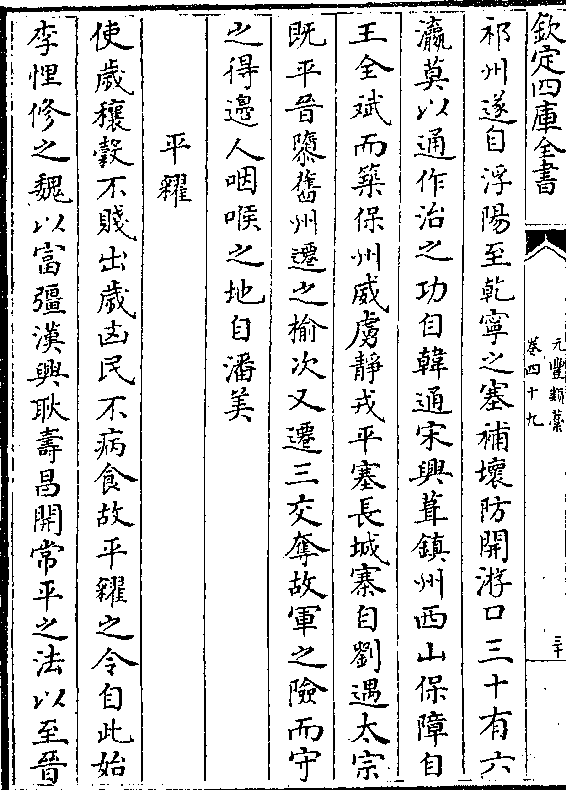 欽定四庫全書
元豐類藁
卷四十九
三十
祁州遂自浮陽至乾寧之塞補壞防開游口三十有六
瀛莫以通作治之功自韓通宋興葺鎮州西山保障自
王全斌而築保州威虜靜戎平塞長城寨自劉遇太宗
既平晉隳舊州遷之榆次又遷三交奪故軍之險而守
之得邊人咽喉之地自潘美
平糴
使歲穰穀不賤出歲凶民不病食故平糴之令自此始
李悝修之魏以富彊漢興耿壽昌開常平之法以至晉